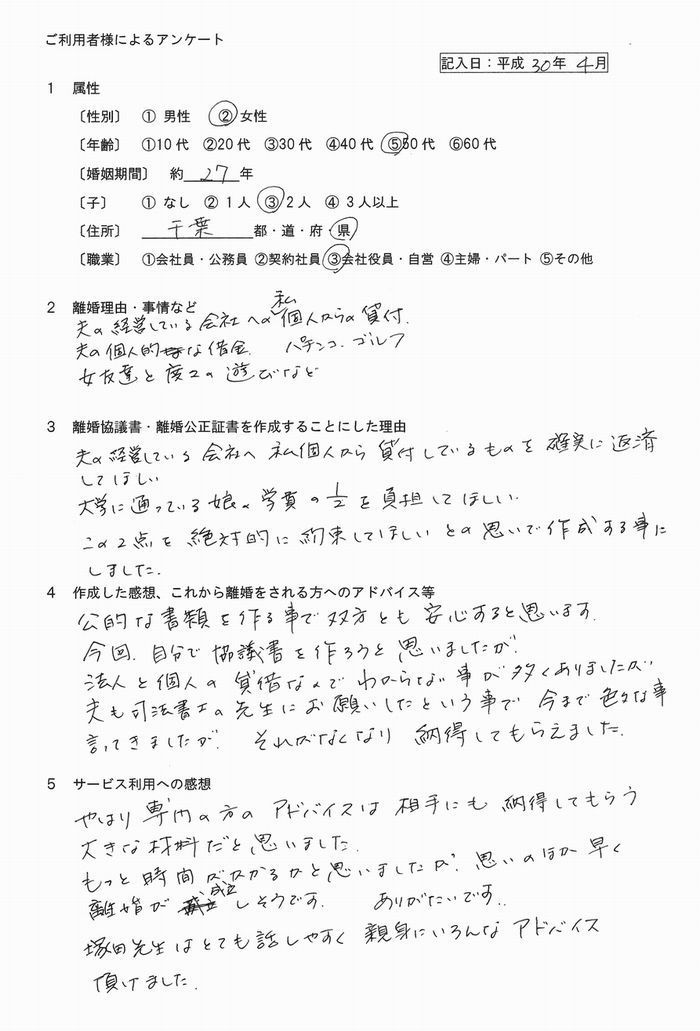 ご利用者様によるアンケート
記入日:平成 30年 4月
1 属性
〔性別〕 ① 男性 ② 女性
〔年齢〕 ①10代 ②20代 ③30代 ④40代 ⑤50代 ⑥60代
〔婚姻期間〕 約 27 年
〔子〕 ① なし ② 1人 ③ 2人 ④ 3人以上
〔住所〕 千葉 都・道・府・県
〔職業〕 ①会社員・公務員 ②契約社員 ③会社役員・自営 ④主婦・パート ⑤その他
2 離婚理由・事情など
夫の経営している会社への私個人からの貸付.
夫の個人的な借金. パチンコ.ゴルフ
女友達と度々の遊びなど
3 離婚協議書・離婚公正証書を作成することにした理由
夫の経営している会社へ私個人から貸付しているものを確実に返済
してほしい
大学に通っている娘の学費の1/2を負担してほしい.
この2点を絶対的に約束してほしいとの思いで作成する事に
しました.
4 作成した感想、これから離婚をされる方へのアドバイス等
公的な書類を作る事で双方とも安心すると思います.
今回.自分で協議書を作ろうと思いましたが.
法人と個人の貸借なんでわからない事が多くありましたが
夫も司法書士の先生にお願いしたという事で今まで色々な事
言ってきましたが. それがなくなり納得してもらえました.
5 サービス利用への感想
やはり専門の方のアドバイスは相手にも納得してもらう
大きな材料だと思いました.
もっと時間がかかるかと思いましたが.思いのほか早く
離婚が成立しそうです. ありがたいです..
塚田先生はとても話しやすく親身にいろんなアドバイス
頂けました.